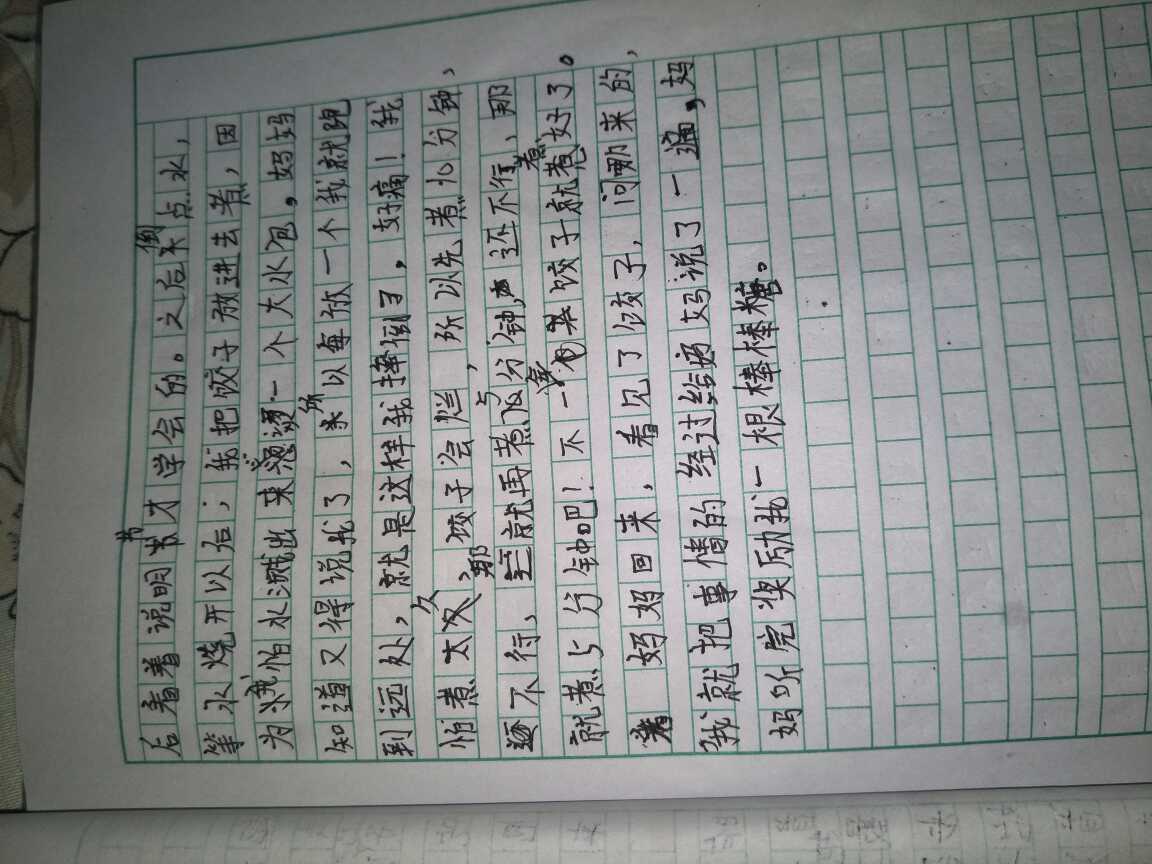 后看着说明书才学会的。之后倒点水，
等水烧开以后；我把饺子放进去煮，因
为我怕水溅出来烫一个大水包，妈妈
知道又得说我了，所以每放一个我就跑
到远处，就是这样我摔倒了，好痛！我
怕煮太久，饺子会烂，所以先煮10分钟，
不行、那就再煮5分钟，还不行、那
就煮5分钟吧！不一会饺子就煮好了。
妈妈回来，看见了饺子，问哪来的，
我就把事情的经过给妈妈说了一遍，妈
妈听完奖励我一根棒棒糖。